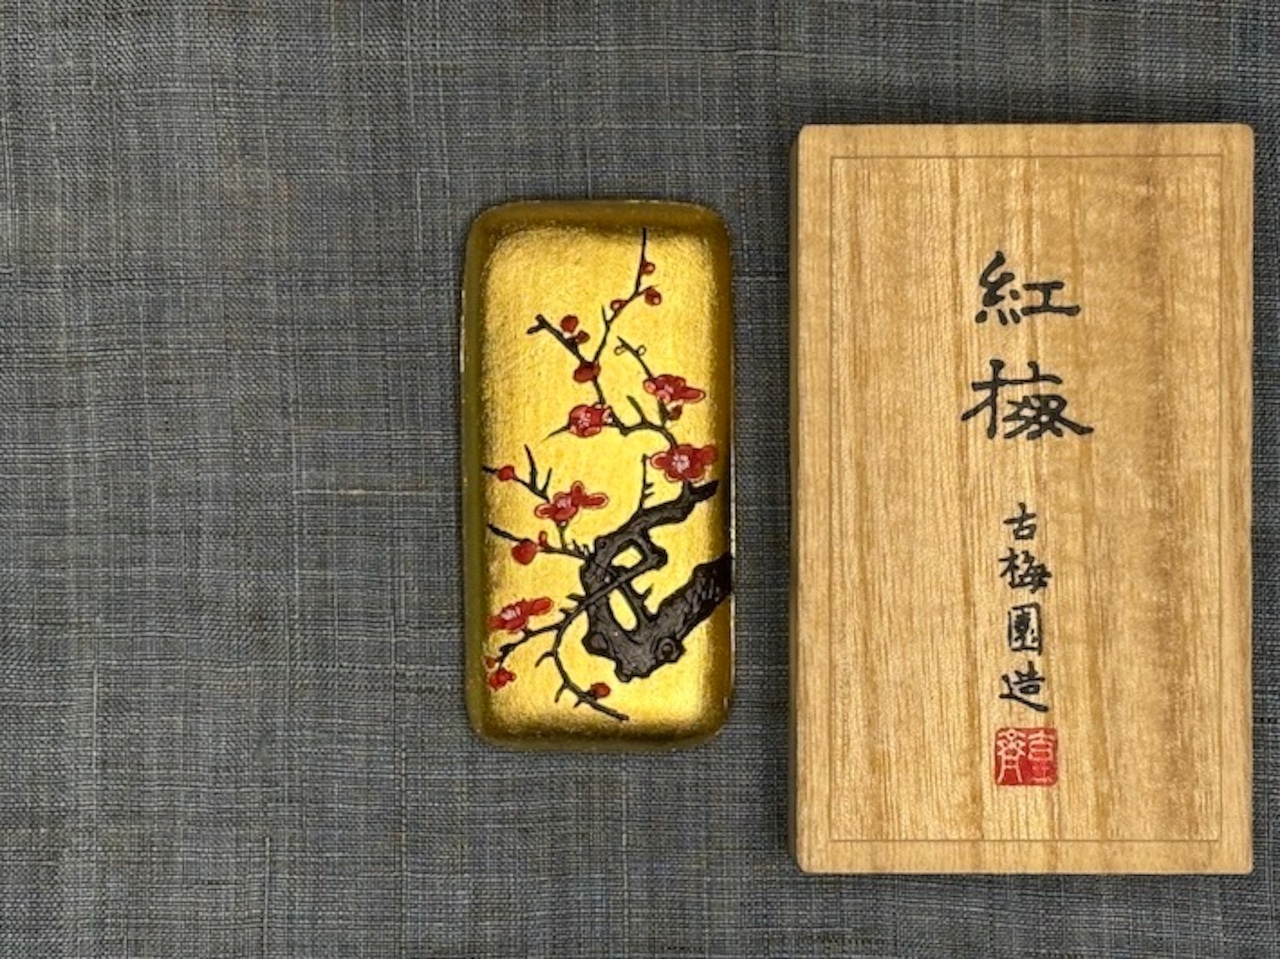 紅梅
古梅園造